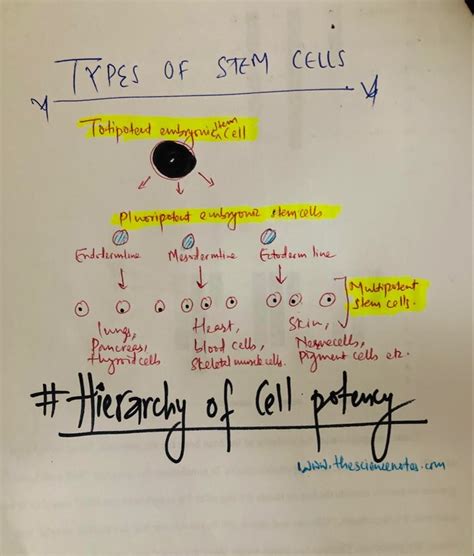 TYPES OF STEM CELLS
Totipotent embryonic stem cell
Pluoripotent embryonic stem cells
Endodermline Mesodermline Ectoderm line
Multipotent
stem cells.
lungs, Heart, Skin,
Pancreas, blood cells, Nervecells,
thyroid cells Skeletal muscle cells. Pigment cells etc.
# Hierarchy of Cell potency
www.thesciencenotes.com